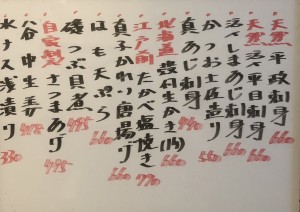 天然 平政刺身 660
天然 活〆平目刺身 660
活〆しまあじ刺身 660
かつお土佐造り 550
真あじ刺身 440
北海道 殻付生かき(1ヶ) 660
江戸前 たかべ塩焼き 770
真子かれい唐揚げ 660
はも天ぷら 660
磯つぶ貝煮 495
自家製 さつまあげ 495
谷中生姜 475
水ナス浅漬け 330